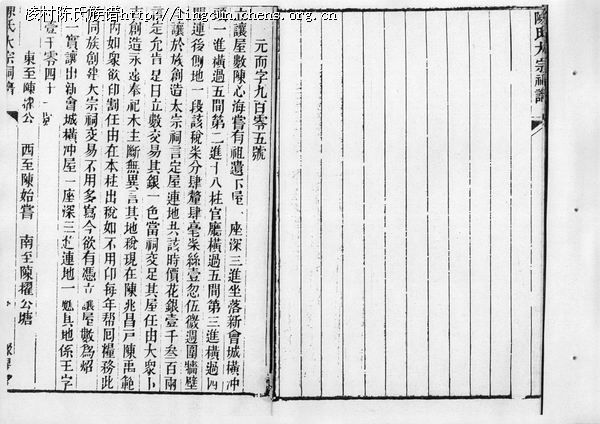 凌村陈氏族谱http://lingcun.ichens.org.cn
陳氏大宗祠譜
元而字九百零五號
立讓屋數陳心海嘗有祖遺下屋一座深三進坐落新會城橫冲
第一進橫過五間第二進十八柱官廳橫過五間第三進橫過四
間連後側地一段該稅柒分肆釐肆毫柒絲壹忽伍微週圍牆壁
讓於族創造太宗祠言定屋連地共該時價花銀壹千叁百兩
言定允肯是日立數交易其銀一色當祠交足其屋任由大衆
創造永遠奉祀木主斷無異言其地稅現在陳兆昌戶陳禹範
內如衆欲印割任由在本柱出稅如不用印每年帮囘糧務此
同族創建大宗祠交易不用多寫今欲有憑立讓屋數為炤
一實讓出新會城橫冲屋一座深三進連地一應其地係王字
壹千零四十號
東至陳 公 西至陳始嘗 南至陳擢公塘
陳氏大宗祠譜